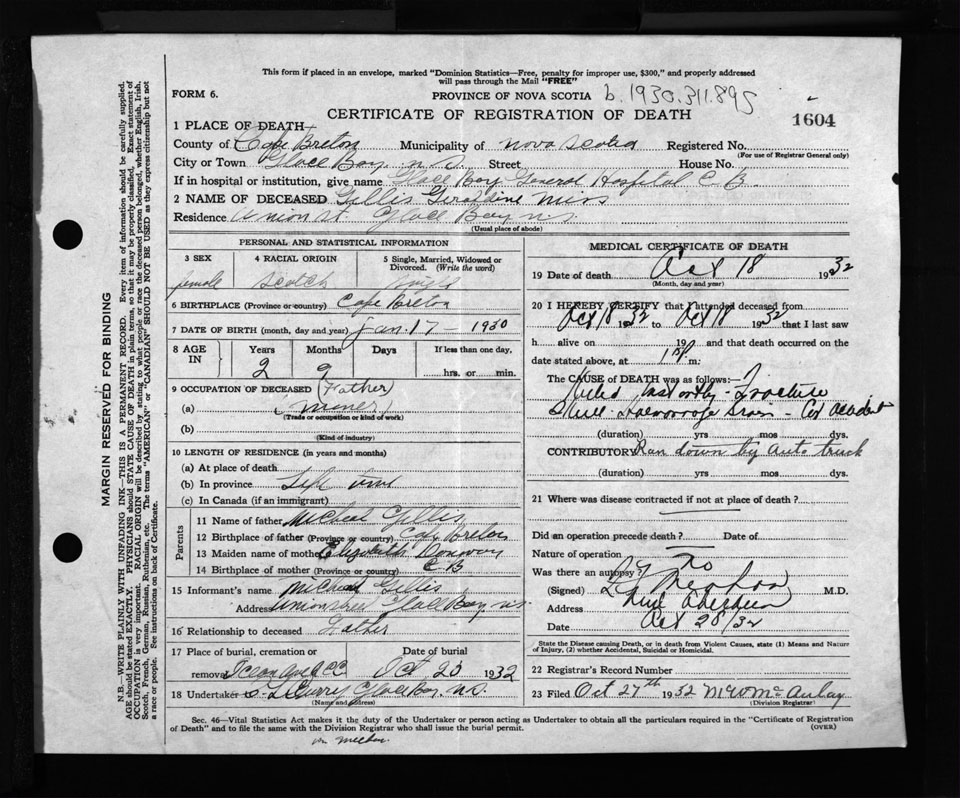 This form if placed in an envelope, marked "Dominion Statistics—Free, penalty for improper use, $300," and properly addressed
will pass through the Mail "FREE"
FORM 6.
PROVINCE OF NOVA SCOTIA b.1930.311.895
CERTIFICATE OF REGISTRATION OF DEATH 1604
1 PLACE OF DEATH—
County of Cape Breton Municipality of Nova Scotia Registered No.
(For use of Registrar General only)
City or Town Glace Bay N S Street House No.
If in hospital or institution, give name Glace Bay General Hospital C B.
2 NAME OF DECEASED Gillis Geraldine Miss
Residence Union St Glace Bay N S
(Usual place of abode)
PERSONAL AND STATISTICAL INFORMATION
3 SEX 4 RACIAL ORIGIN 5 Single, Married, Widowed or Divorced. (Write the word)
female Scotch
6 BIRTHPLACE (Province or country) Cape Breton
7 DATE OF BIRTH (month, day and year) Jan. 17 – 1930
8 AGE IN Years Months Days If less than one day,
2 9 hrs. or min.
9 OCCUPATION OF DECEASED (Father)
(a) (miner)
(Trade or occupation or kind of work)
(b)
(Kind of industry)
10 LENGTH OF RESIDENCE (in years and months)
(a) At place of death
(b) In province Life time
(c) In Canada (if an immigrant)
Parents
11 Name of father Micheal Gillis
12 Birthplace of father (Province or country) Cape Breton
13 Maiden name of mother Elizabeth Donovan
14 Birthplace of mother (Province or country) C B
15 Informant's name Micheal Gillis
Address Union Street Glace Bay N S
16 Relationship to deceased Father
17 Place of burial, cremation or removal Date of burial
Oct 20 1932
18 Undertaker Curry Glace Bay, N.S.
(Name and address)
MEDICAL CERTIFICATE OF DEATH
19 Date of death Oct 18 1932
(Month, day and year)
20 I HEREBY CERTIFY that I attended deceased from
Oct 18 1932 to Oct 18 1932 that I last saw
h alive on 19 and that death occurred on the
date stated above, at 1 m:
The CAUSE of DEATH was as follows:—
Killed instantly – Fracture
Skull – Haemorrage Brain – Car accident
(duration) yrs mos dys.
CONTRIBUTORY Run down by auto truck
(duration) yrs. mos. dys.
21 Where was disease contracted if not at place of death?
Did an operation precede death? Date of
Nature of operation
Was there an autopsy? No
(Signed) M.D.
Address New Aberdeen
Date Oct 28/32
State the Disease causing Death, or in death from Violent Causes, state (1) Means and Nature
of Injury, (2) whether Accidental, Suicidal or Homicidal.
22 Registrar's Record Number
23 Filed Oct 27th 1932 McAulay
(Division Registrar)
Sec. 46—Vital Statistics Act makes it the duty of the Undertaker or person acting as Undertaker to obtain all the particulars required in the "Certificate of Registration
of Death" and to file the same with the Division Registrar who shall issue the burial permit. (OVER)
MARGIN RESERVED FOR BINDING
N.B.—WRITE PLAINLY WITH UNFADING INK—THIS IS A PERMANENT RECORD. Every item of information should be carefully supplied.
AGE should be stated EXACTLY. PHYSICIANS should STATE CAUSE OF DEATH in plain terms, so that it may be properly classified. Exact statement of
OCCUPATION is very important. RACIAL ORIGIN will be described by stating to what people or race the deceased person belonged, whether English, Irish,
Scotch, French, German, Russian, Ruthenian, etc. The terms "AMERICAN" or "CANADIAN" SHOULD NOT BE USED as they express citizenship but not
a race or people. See instructions on back of Certificate.